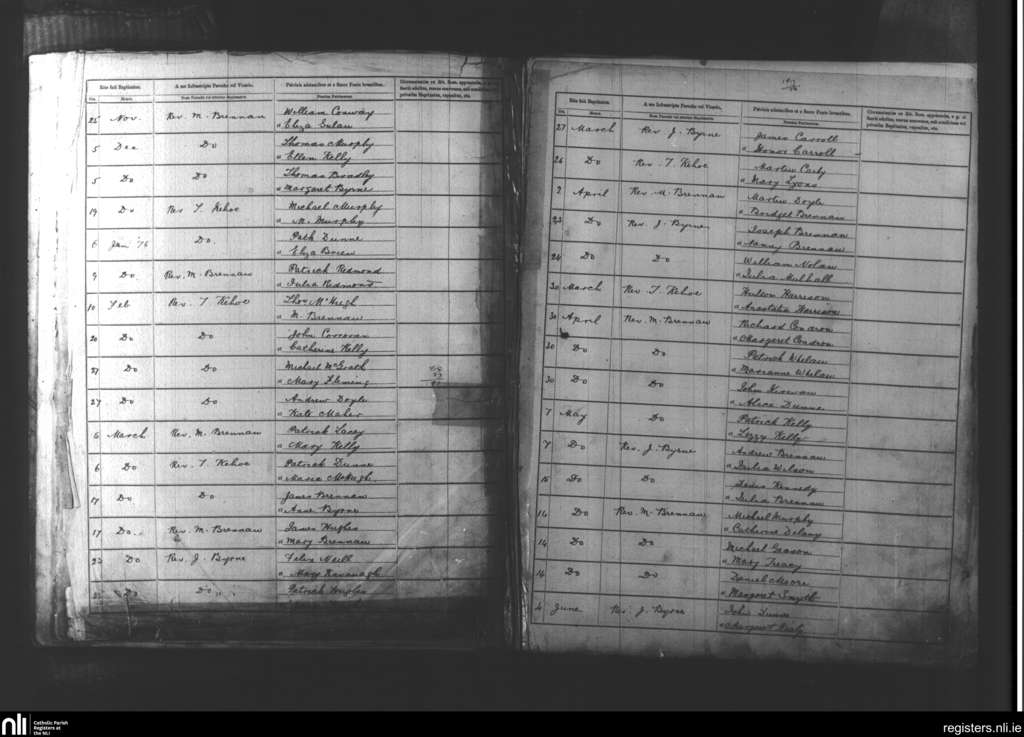 Rite fuit Baptizatus. A me Infrascripto Parocho vel Vicario. Patrinis adstantibus et e Sacro Fonte levantibus.
Die. Mensis. Nomina Patrinorum.
25 Nov. Rev. M. Brennan William Conway
" Eliza
5 Dec Do Thomas Murphy
" Ellen Kelly
5 Do Do Thomas Bradley
" Margaret Byrne
19 Do Rev T. Kehoe Michael Murphy
" M. Murphy
6 Jan '76 Do. Patk Dunne
" Eliza
9 Do Rev. M. Brennan Patrick Redmond
" Julia Redmond
10 Feb Rev. T. Kehoe Thos McHugh
" M. Brennan
20 Do Do John Corcoran
" Catherine Kelly
27 Do Do Michael McGrath
" Mary Fleming
27 Do Do Andrew Doyle
" Kate Maher
6 March Rev. M. Brennan Patrick Lacey
" Mary Kelly
6 Do Rev. T. Kehoe Patrick Dunne
" Maria McHugh
17 Do Do James Brennan
" Anne Byrne
17 Do Rev. M. Brennan James Hughes
" Mary Brennan
23 Do Rev. J. Byrne Felix Neill
" Mary Kavanagh
Do Do Patrick Hughes
Rite fuit Baptizatus. A me Infrascripto Parocho vel Vicario. Patrinis adstantibus et e Sacro Fonte levantibus.
Die. Mensis. Nomina Patrinorum.
27 March Rev. J. Byrne James Carroll
" Honor Carroll
26 Do Rev. T. Kehoe Martin Carty
" Mary Lyons
2 April Rev M. Brennan Martin Doyle
" Bridget Brennan
23 Do Rev. J. Byrne Joseph Brennan
" Fanny Brennan
24 Do Do William Nolan
" Julia Mulhall
30 March Rev. T. Kehoe Harrison
" Anastatia Harrison
30 April Rev. M. Brennan Richard Condron
" Margaret Condron
30 Do Do Patrick Whelan
" Marianne Whelan
30 Do Do John Kirwan
" Alice Dunne
7 May Do Patrick Kelly
" Lizzy Kelly
7 Do Rev. J. Byrne Andrew Brennan
" Julia Wilson
15 Do Do James Kennedy
" Julia Brennan
14 Do Rev. M. Brennan Michael Murphy
" Catherine Delany
14 Do Do Michael
" Mary Treacy
14 Do Do Daniel Moore
" Margaret Smyth
4 June Rev. J. Byrne John Dunne
" Margaret
nli Catholic Parish
Registers at
the NLI
registers.nli.ie